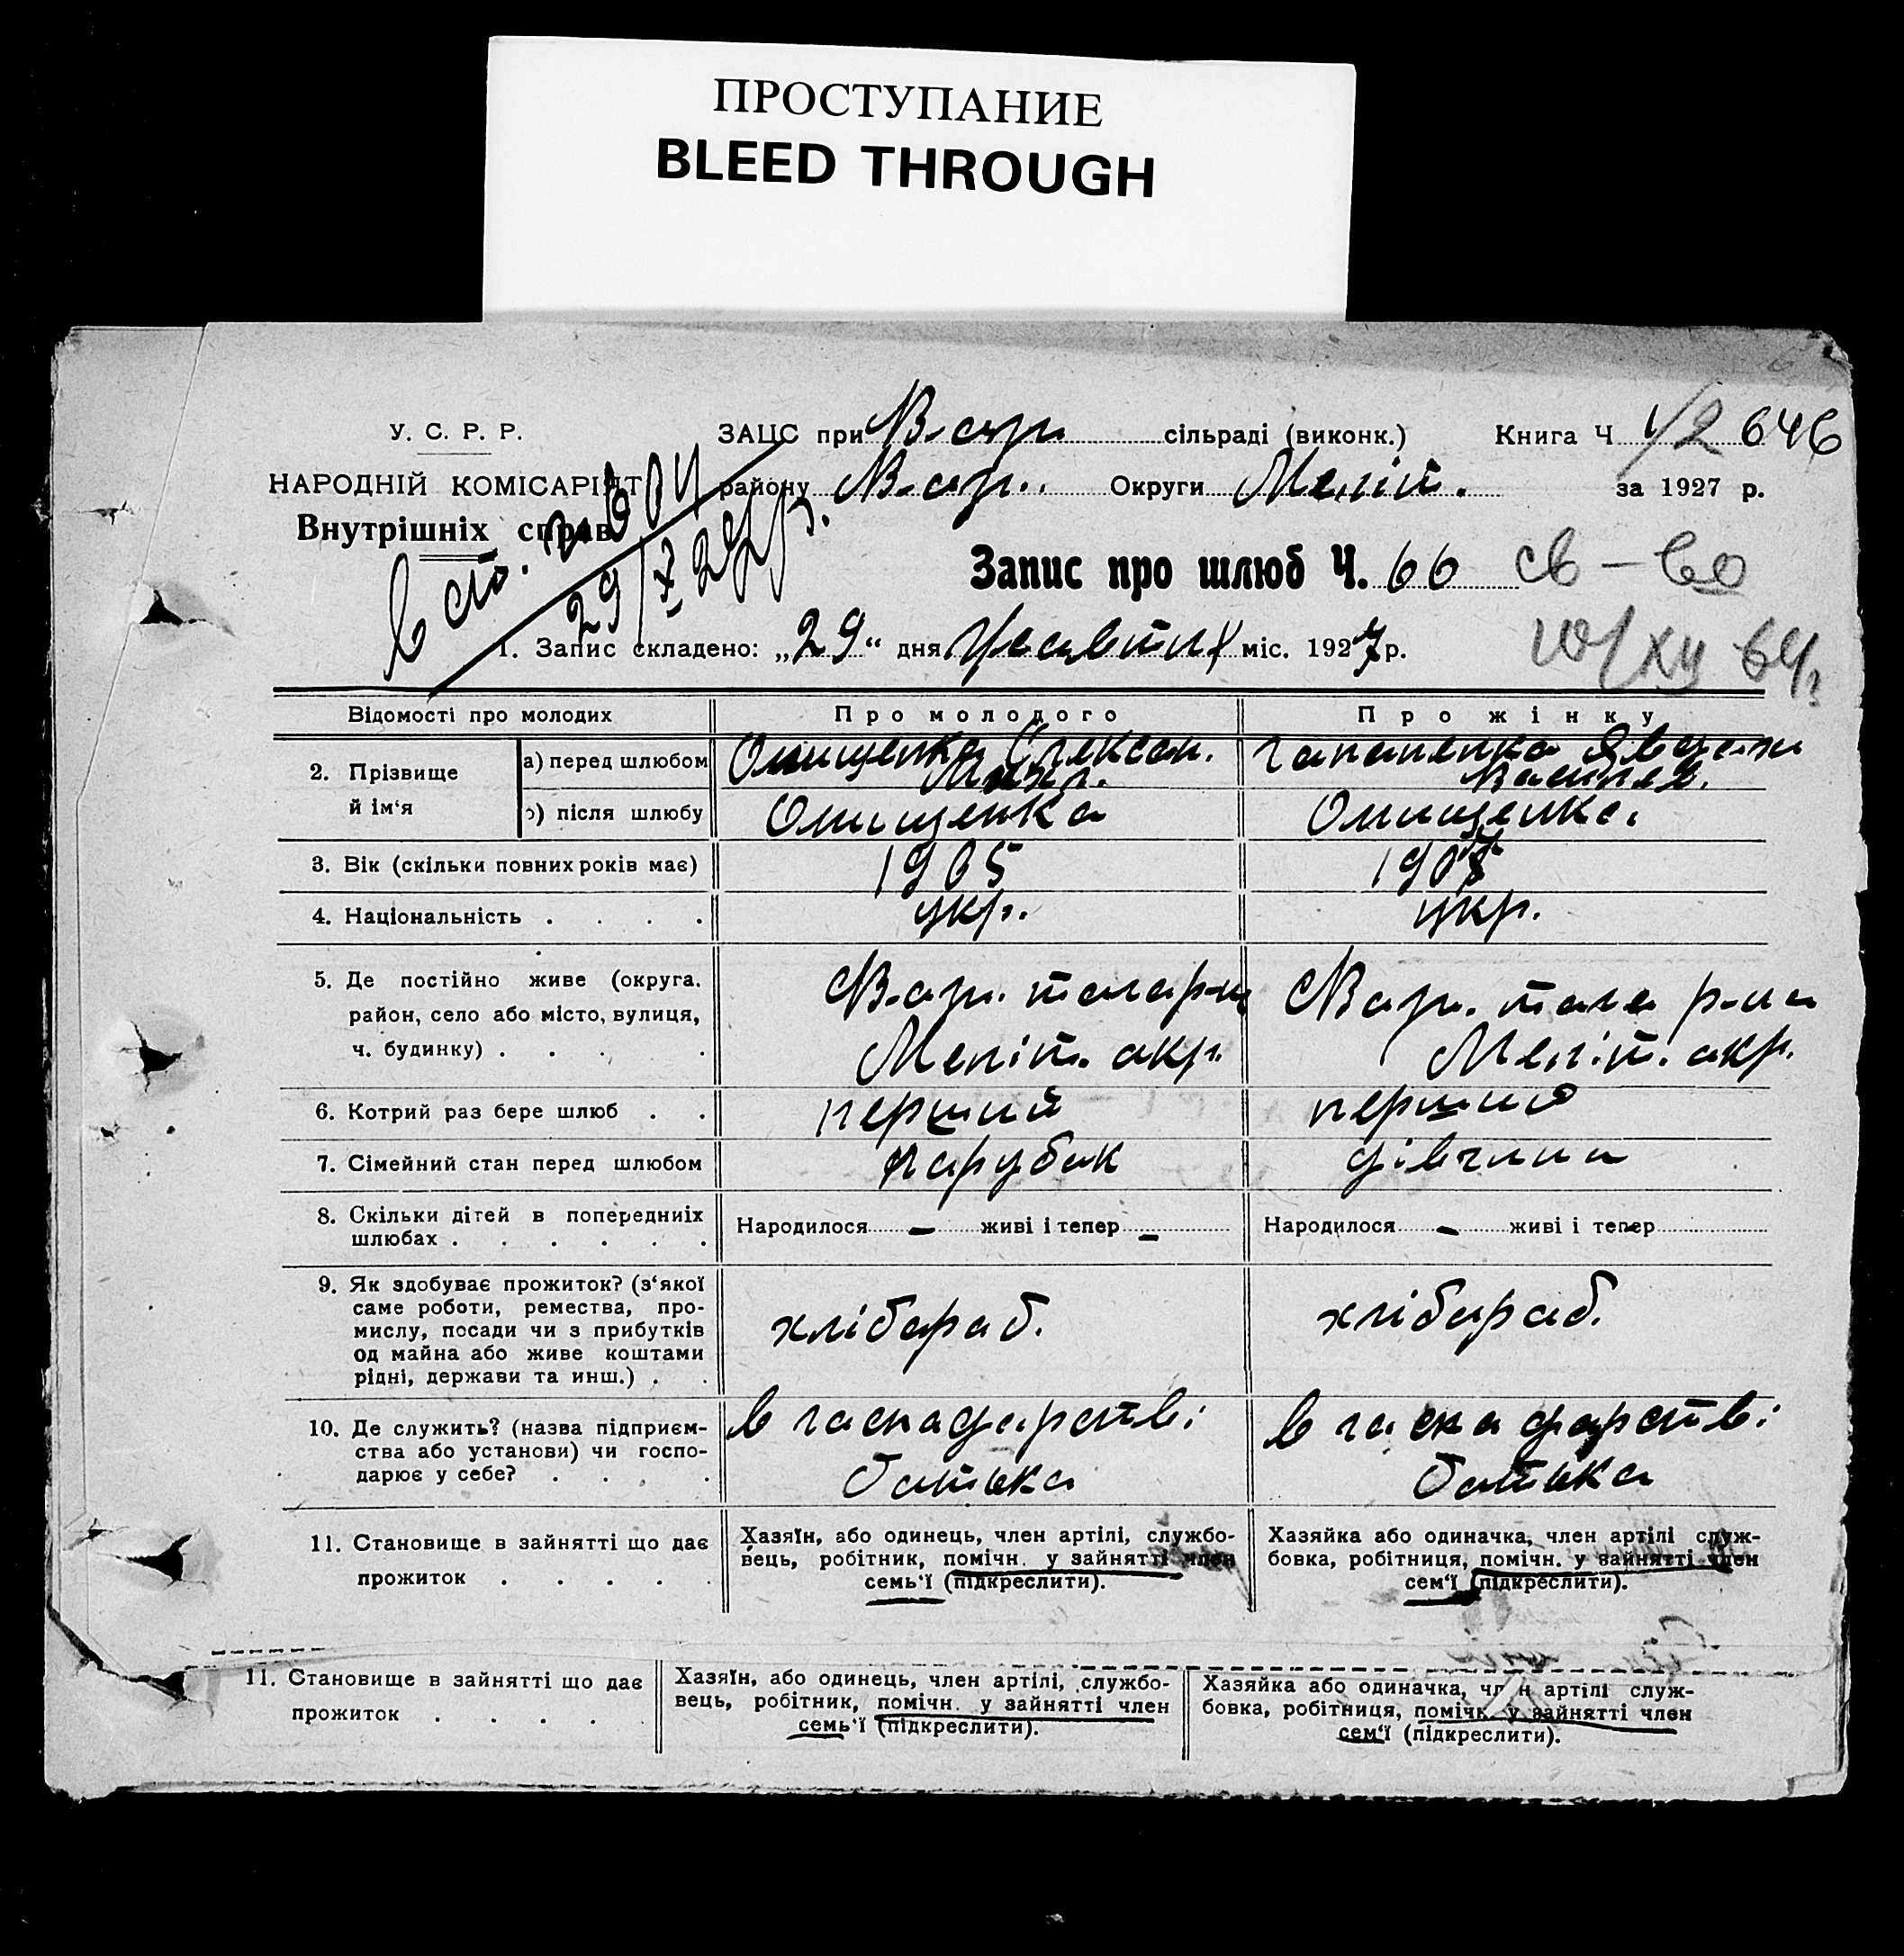 ПРОСТУПАНИЕ
BLEED THROUGH
У. С. Р. Р.
НАРОДНІЙ КОМІСАРІЯТ
Внутрішніх справ
ЗАЦС при сільраді (виконк.) Книга Ч 646
району Округи Меліт. за 1927 р.
29/X 27 р.
Запис про шлюб Ч. 66 св-во
1. Запис складено: „29“ дня міс. 1927 р.
Відомості про молодих
Про молодого
Про жінку
2. Прізвище й ім‘я
а) перед шлюбом
Онищенко Олексан.
Василів.
) після шлюбу
Онищенка
Онищенка
3. Вік (скільки повних років має)
1905
4. Національність . . . .
укр.
укр.
5. Де постійно живе (округа.
район, село або місто, вулиця,
ч. будинку) . . . .
Меліт. акр.
Меліт. акр.
6. Котрий раз бере шлюб . .
перший
перший
7. Сімейний стан перед шлюбом
парубок
дівчина
8. Скільки дітей в попередниіх
шлюбах . . . . . .
Народилося – живі і тепер –
Народилося – живі і тепер -
9. Як здобуває прожиток? (з‘якої
саме роботи, ремества, про-
мислу, посади чи з прибутків
од майна або живе коштами
рідні, держави та инш.) . .
хлібараб.
хлібараб.
10. Де служить? (назва підприєм-
ства або установи) чи госпо-
дарює у себе? . . .
в гаспадарстві
батька
в гаспадарстві
батька
11. Становище в зайнятті що дає
прожиток . . . . .
Хазяїн, або одинець, член артілі, службо-
вець, робітник, помічн. у зайнятті член
семь‘ї (підкреслити).
Хазяйка або одиначка, член артілі служ-
бовка, робітниця, помічн. у зайнятті член
сем‘ї (підкреслити).
11. Становище в зайнятті що дає
прожиток . . . .
Хазяїн, або одинець, член артілі, службо-
вець, робітник, помічн. у зайнятті член
семь‘ї (підкреслити).
Хазяйка або одиначка, член артілі служ-
бовка, робітниця, помічн. у зайнятті член
сем‘ї (підкреслити).